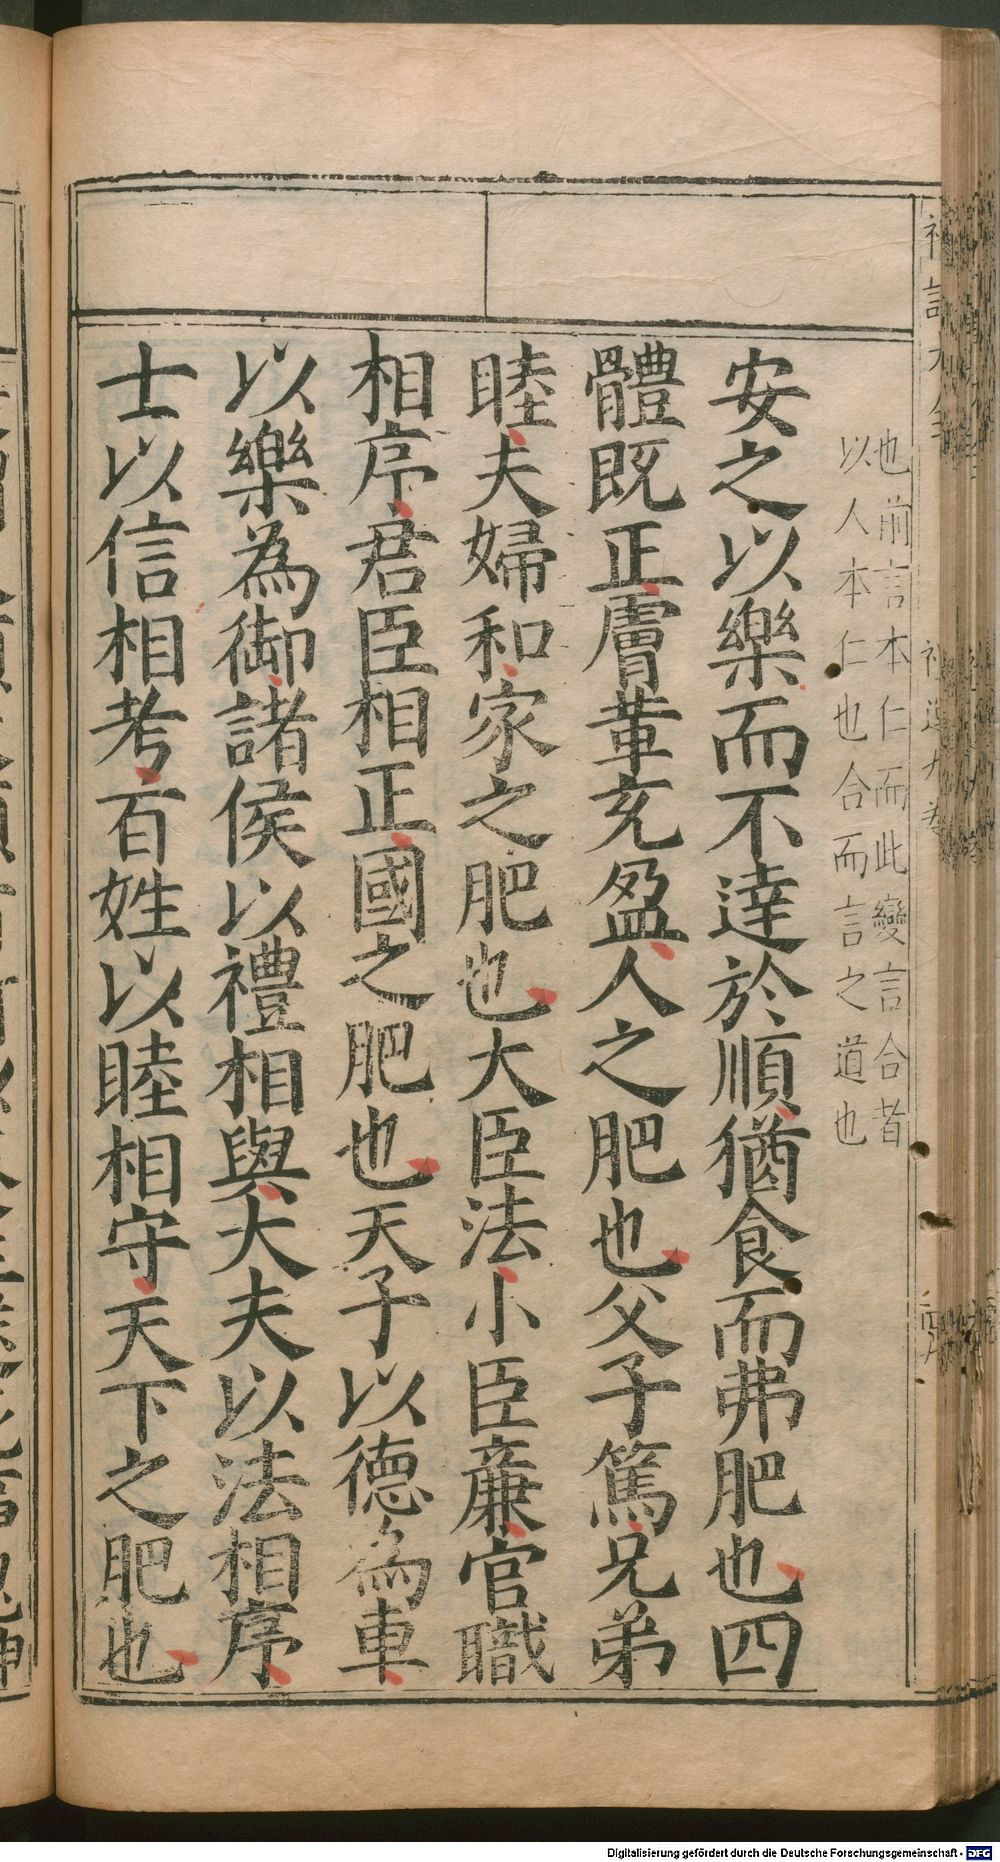 也前言本仁而此變言合者
以人本仁也合而言之道也
安之以樂而不達於順猶食而弗肥也四
體既正膚革充盈人之肥也父子篤兄弟
睦夫婦和家之肥也大臣法小臣廉官職
相序君臣相正國之肥也天子以德為車
以樂為御諸侯以禮相與大夫以法相序
士以信相考百姓以睦相守天下之肥也
Digitalisierung gefördert durch die Deutsche Forschungsgemeinschaft - DFG